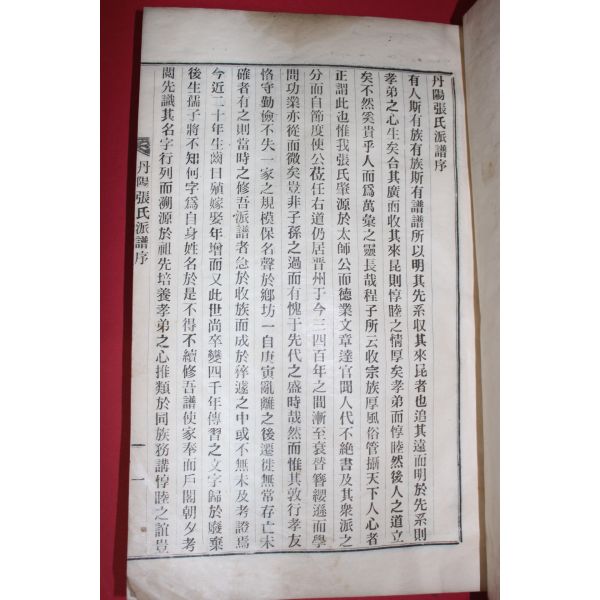 丹陽張氏派譜序
有人斯有族有族斯有譜譜所以明其先系収其來昆者也追其遠而明於先系則
孝弟之心生矣合其廣而収其來昆則惇睦之情厚矣孝弟而惇睦然後人之道立
矣不然奚貴乎人而爲萬彙之靈長哉程子所云收宗族厚風俗管攝天下人心者
正謂此也惟我張氏肇源於太師公而德業文章達官聞人代不絶書及其衆派之
分而自節度使公莅任右道仍居晋州于今三四百年之間漸至衰替簪纓遜而學
問功業亦從而微矣豈非子孫之過而有愧于先代之盛時哉然而惟其敦行孝友
恪守勤儉不失一家之規模保名聲於鄉坊一自庚寅亂離之後遷徙無常存亡未
確者有之則當時之修吾派譜者急於收族而成於猝遽之中或不無未及考證焉
今近二十年生齒日殖嫁娶年增而又此世尚卒變四千年傳習之文字歸於廢棄
後生孺子將不知何字爲自身姓名於是不得不續修吾譜使家奉而戶閣朝夕考
閱先識其名字行列而溯源於祖先培養孝弟之心推類於同族務講惇睦之誼豈
丹陽張氏派譜序
一